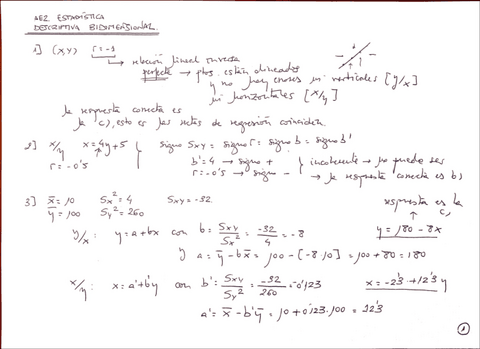 AE2 ESTADÍSTICA
DESCRIPTIVA BIDIMENSIONAL.
1] (X,Y) r=-1
relación lineal inversa
perfecta → ptos. están alineados
y no hay errores ni verticales [y/x]
ni horizontales [x/y]
la respuesta correcta es
la c), esto es las rectas de regresión coinciden.
2] x/y x=4y+5 signo Sxy = signo r = signo b = signo b'
r=-0'5 b'=4 → signo +
r=-0'5 → signo - incoherente → no puede ser
→ la respuesta correcta es b)
3] x̄=10 Sx²=4 Sxy=-32
ȳ=100 Sy²=260
respuesta es la c)
y/x: y=a+bx con b=Sxy/Sx²=-32/4=-8 y=180-8x
y a=ȳ-bx̄=100-[-8·10]=100+80=180
x/y: x=a'+b'y con b'=Sxy/Sy²=-32/260=-0'123 x=-2'3+12'3y
a'=x̄-b'ȳ=10+0'123·100=22'3
1